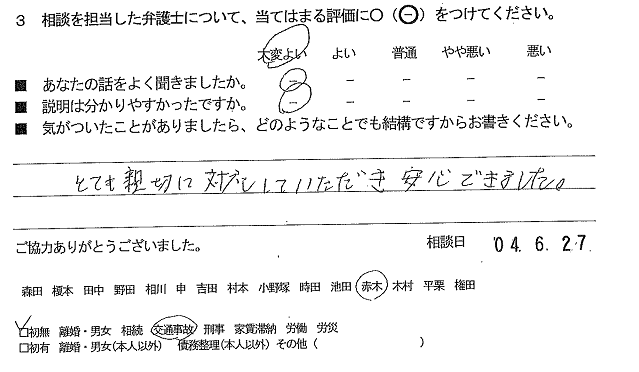 3 相談を担当した弁護士について、当てはまる評価に○(⊖)をつけてください。
大変よい よい 普通 やや悪い 悪い
■ あなたの話をよく聞きましたか。 − − − − −
■ 説明は分かりやすかったですか。 − − − − −
■ 気がついたことがありましたら、どのようなことでも結構ですからお書きください。
とても親切に対応していただき安心できました。
ご協力ありがとうございました。 相談日 '04.6.27
森田 榎本 田中 野田 相川 申 吉田 村本 小野塚 時田 池田 赤木 木村 平栗 権田
□初無 離婚・男女 相続 交通事故 刑事 家賃滞納 労働 労災
□初有 離婚・男女(本人以外) 債務整理(本人以外) その他( )